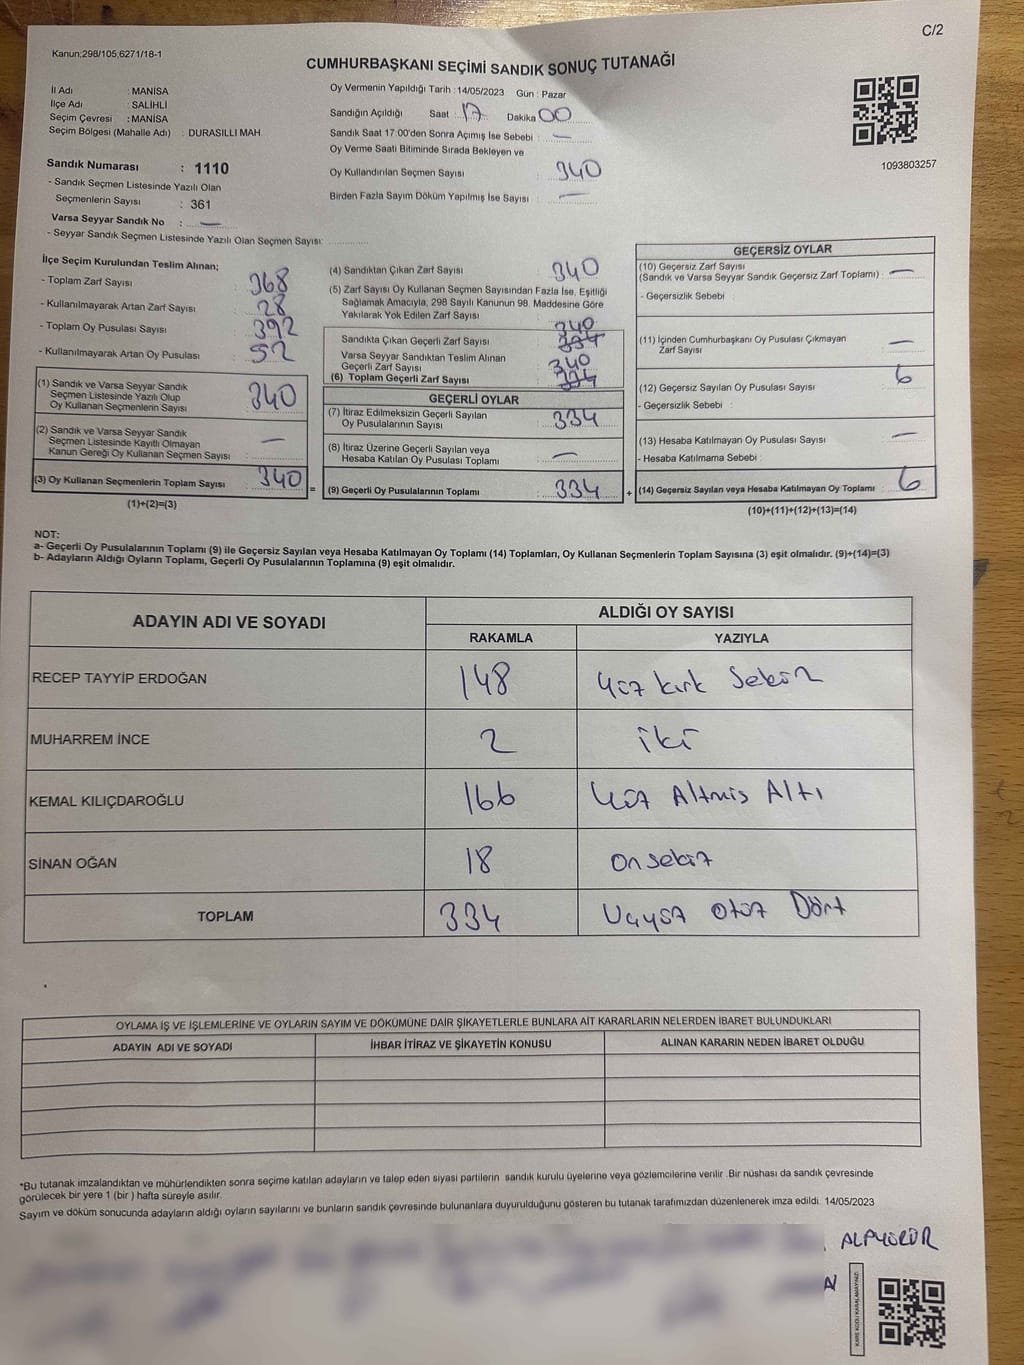 C/2
Kanun:298/105,6271/18-1
CUMHURBAŞKANI SEÇİMİ SANDIK SONUÇ TUTANAĞI
İl Adı : MANİSA
İlçe Adı : SALİHLİ
Seçim Çevresi : MANİSA
Seçim Bölgesi (Mahalle Adı) : DURASILLI MAH.
Sandık Numarası : 1110
- Sandık Seçmen Listesinde Yazılı Olan
Seçmenlerin Sayısı : 361
Varsa Seyyar Sandık No : —
- Seyyar Sandık Seçmen Listesinde Yazılı Olan Seçmen Sayısı:
Oy Vermenin Yapıldığı Tarih : 14/05/2023 Gün : Pazar
Sandığın Açıldığı Saat : 17 Dakika 00
Sandık Saat 17:00'den Sonra Açımış İse Sebebi : —
Oy Verme Saati Bitiminde Sırada Bekleyen ve
Oy Kullandırılan Seçmen Sayısı : 340
Birden Fazla Sayım Döküm Yapılmış İse Sayısı : —
1093803257
İlçe Seçim Kurulundan Teslim Alınan;
- Toplam Zarf Sayısı : 368
- Kullanılmayarak Artan Zarf Sayısı : 28
- Toplam Oy Pusulası Sayısı : 392
- Kullanılmayarak Artan Oy Pusulası : 52
(1) Sandık ve Varsa Seyyar Sandık
Seçmen Listesinde Yazılı Olup
Oy Kullanan Seçmenlerin Sayısı : 340
(2) Sandık ve Varsa Seyyar Sandık
Seçmen Listesinde Kayıtlı Olmayan
Kanun Gereği Oy Kullanan Seçmen Sayısı : —
(3) Oy Kullanan Seçmenlerin Toplam Sayısı : 340
(1)+(2)=(3)
(4) Sandıktan Çıkan Zarf Sayısı : 340
(5) Zarf Sayısı Oy Kullanan Seçmen Sayısından Fazla İse, Eşitliği
Sağlamak Amacıyla, 298 Sayılı Kanunun 98. Maddesine Göre
Yakılarak Yok Edilen Zarf Sayısı :
340
Sandıkta Çıkan Geçerli Zarf Sayısı : 334
Varsa Seyyar Sandıktan Teslim Alınan
Geçerli Zarf Sayısı : 340
(6) Toplam Geçerli Zarf Sayısı : 334
GEÇERLİ OYLAR
(7) İtiraz Edilmeksizin Geçerli Sayılan
Oy Pusulalarının Sayısı : 334
(8) İtiraz Üzerine Geçerli Sayılan veya
Hesaba Katılan Oy Pusulası Toplamı : —
= (9) Geçerli Oy Pusulalarının Toplamı : 334 +
GEÇERSİZ OYLAR
(10) Geçersiz Zarf Sayısı
(Sandık ve Varsa Seyyar Sandık Geçersiz Zarf Toplamı) : —
- Geçersizlik Sebebi :
(11) İçinden Cumhurbaşkanı Oy Pusulası Çıkmayan
Zarf Sayısı : —
(12) Geçersiz Sayılan Oy Pusulası Sayısı : 6
- Geçersizlik Sebebi :
(13) Hesaba Katılmayan Oy Pusulası Sayısı : —
- Hesaba Katılmama Sebebi :
(14) Geçersiz Sayılan veya Hesaba Katılmayan Oy Toplamı : 6
(10)+(11)+(12)+(13)=(14)
NOT:
a- Geçerli Oy Pusulalarının Toplamı (9) ile Geçersiz Sayılan veya Hesaba Katılmayan Oy Toplamı (14) Toplamları, Oy Kullanan Seçmenlerin Toplam Sayısına (3) eşit olmalıdır. (9)+(14)=(3)
b- Adayların Aldığı Oyların Toplamı, Geçerli Oy Pusulalarının Toplamına (9) eşit olmalıdır.
ADAYIN ADI VE SOYADI ALDIĞI OY SAYISI
RAKAMLA YAZIYLA
RECEP TAYYİP ERDOĞAN 148 Yüz kırk Sekiz
MUHARREM İNCE 2 iki
KEMAL KILIÇDAROĞLU 166 Yüz Altmış Altı
SİNAN OĞAN 18 on sekiz
TOPLAM 334 Üçyüz otuz Dört
OYLAMA İŞ VE İŞLEMLERİNE VE OYLARIN SAYIM VE DÖKÜMÜNE DAİR ŞİKAYETLERLE BUNLARA AİT KARARLARIN NELERDEN İBARET BULUNDUKLARI
ADAYIN ADI VE SOYADI İHBAR İTİRAZ VE ŞİKAYETİN KONUSU ALINAN KARARIN NEDEN İBARET OLDUĞU
*Bu tutanak imzalandıktan ve mühürlendikten sonra seçime katılan adayların ve talep eden siyasi partilerin sandık kurulu üyelerine veya gözlemcilerine verilir .Bir nüshası da sandık çevresinde
görülecek bir yere 1 (bir ) hafta süreyle asılır.
Sayım ve döküm sonucunda adayların aldığı oyların sayılarını ve bunların sandık çevresinde bulunanlara duyurulduğunu gösteren bu tutanak tarafımızdan düzenlenerek imza edildi. 14/05/2023
ALPYÜRÜR
KARE KODU KARALAMAYINIZ!